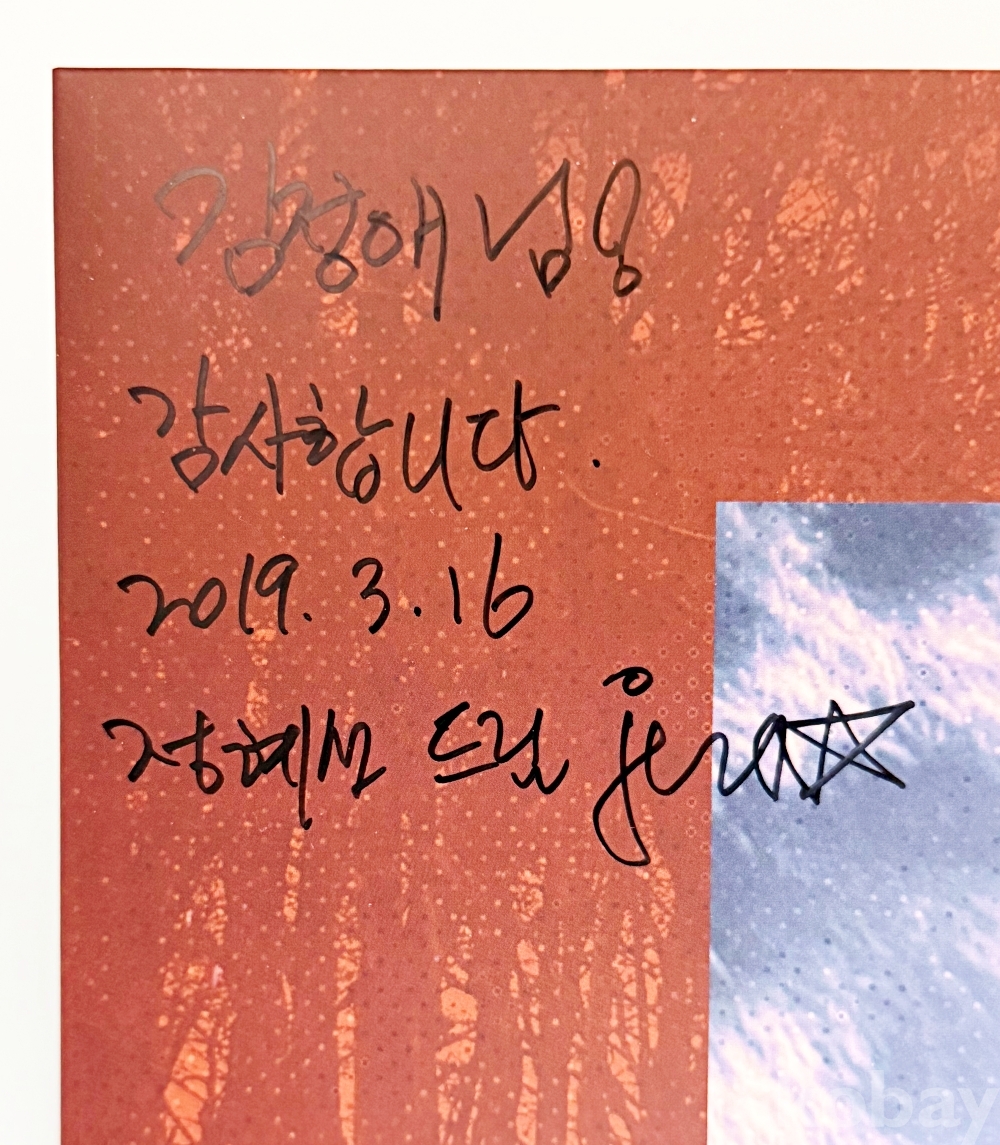 김정애 님
감사합니다.
2019. 3. 16
정혜선 드림 jera☆
bay